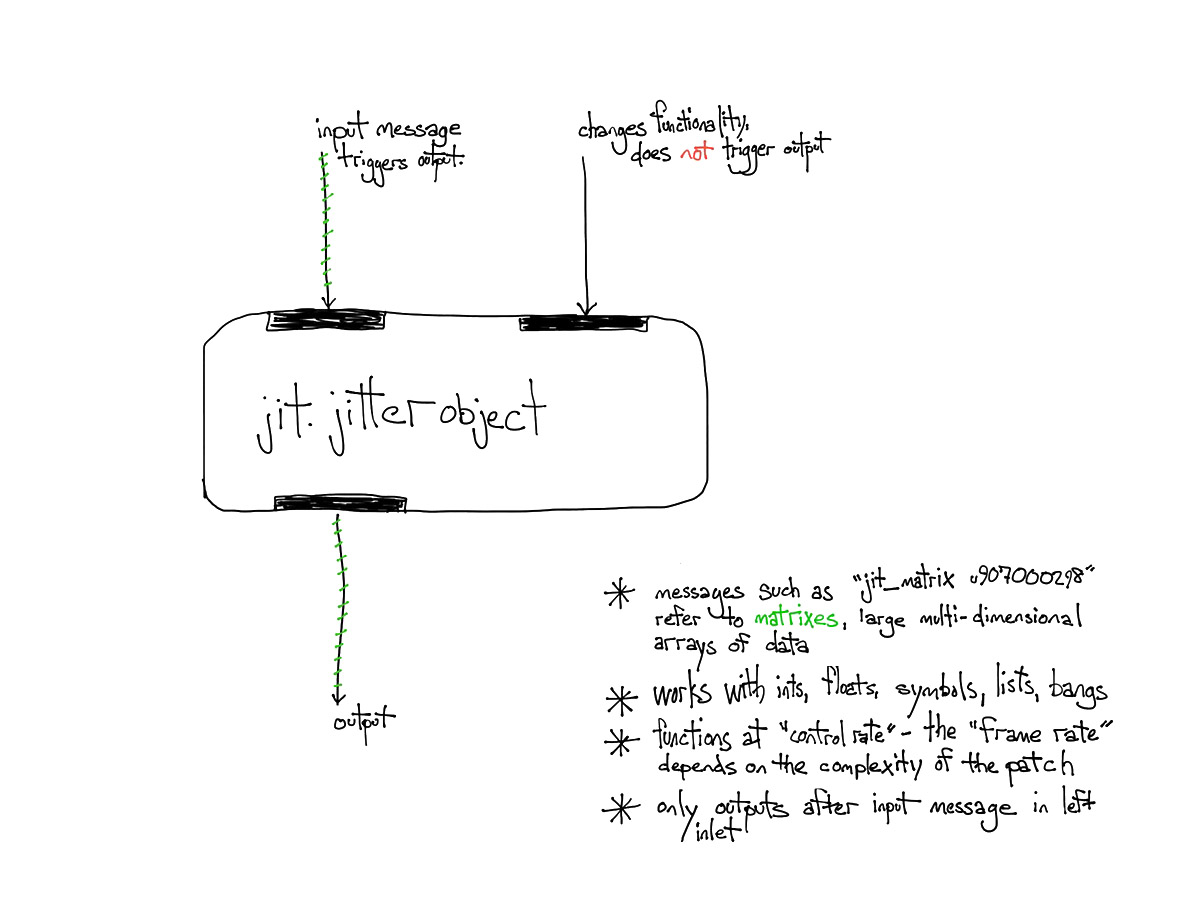 input message
triggers output.
changes functionality,
does not trigger output
jit.jitterobject
output
* messages such as "jit_matrix u907000298"
refer to matrixes, large multi-dimensional
arrays of data
* works with ints, floats, symbols, lists, bangs
* functions at "control rate" - the "frame rate"
depends on the complexity of the patch
* only outputs after input message in left
inlet